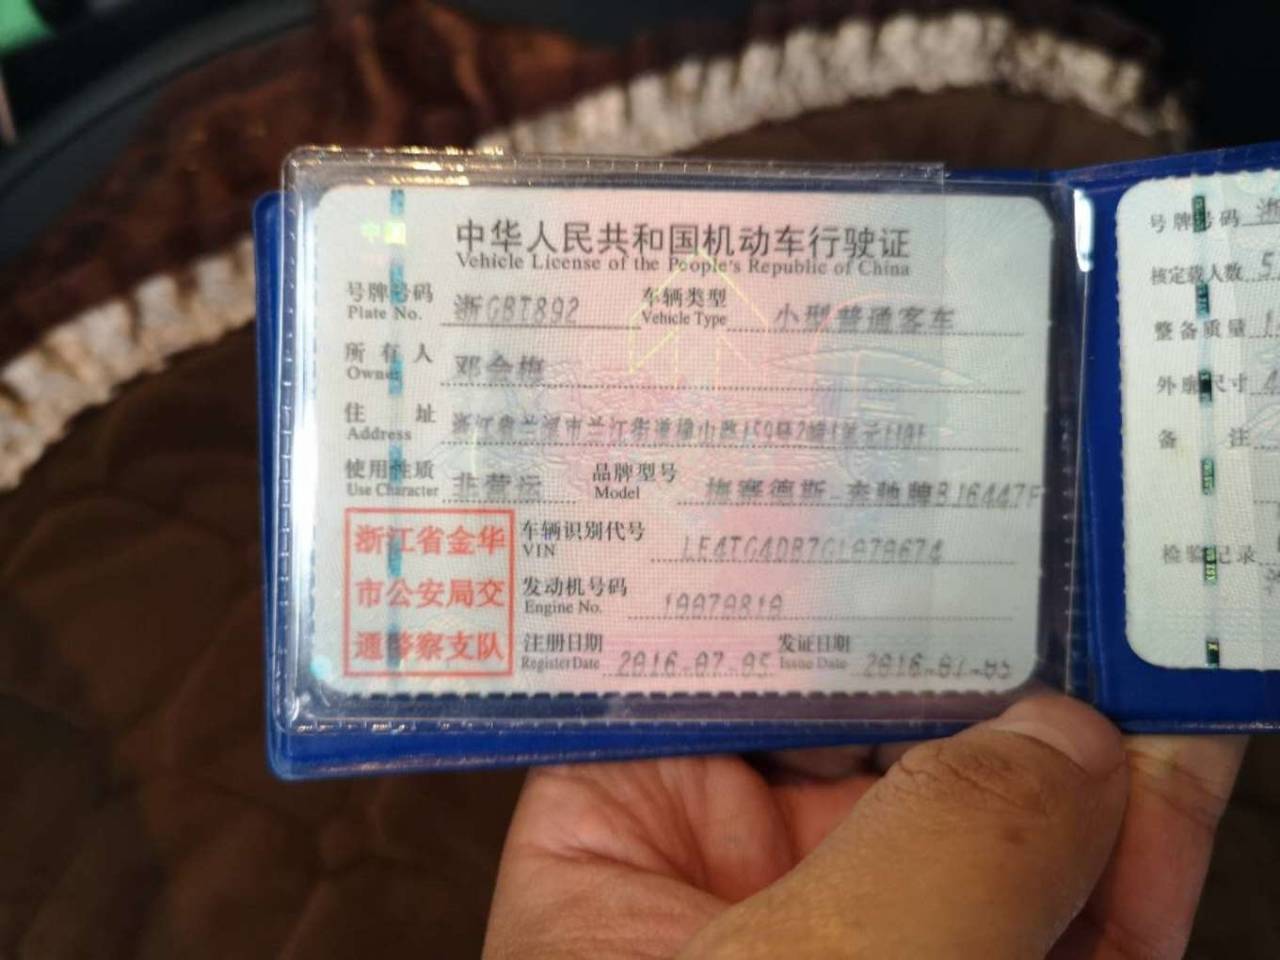 中国
中华人民共和国机动车行驶证
Vehicle License of the People's Republic of China
号牌号码 浙GBT892 车辆类型 小型普通客车
Plate No. Vehicle Type
所有人
Owner
住址 浙江省兰溪市兰江街道
Address
使用性质 非营运 品牌型号 梅赛德斯-奔驰牌BJ6447F
Use Character Model
浙江省金华
市公安局交
通警察支队
车辆识别代号
VIN
发动机号码
Engine No.
注册日期 2016-07-05 发证日期 2016-07-05
Register Date Issue Date
号牌号码 浙
核定载人数 5
整备质量 1
外廓尺寸 4
备注
检验记录